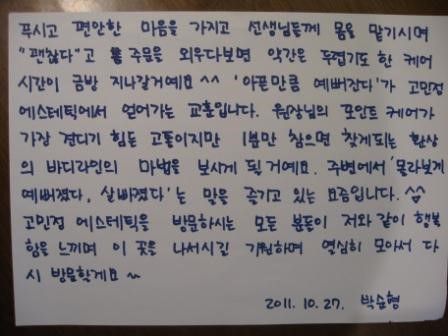 푹시고 편안한 마음을 가지고 선생님들께 몸을 맡기시며
"괜찮다"고 주문을 외우다보면 약간은 독접기도 한 케어
시간이 금방 지나갈거예요 ^^ '아픈만큼 예뻐잔다'가 고민정
에스테틱에서 얻어가는 교훈입니다. 원장님의 포인트케어가
가장 견디기 힘든 고통이지만 1분만 참으면 찾게되는 환상
의 바디라인의 마법을 보시게 될거예요. 주변에서 '몰라보게
예뻐졌다, 살빠졌다'는 말을 즐기고 있는 요즘입니다. ^^
고민정 에스테틱을 방문하시는 모든 분들이 저와 같이 행복
함을 느끼며 이 곳을 나서시길 기원하며 열심히 모아서 다
시 방문할게요 ~
2011. 10. 27. 박순형